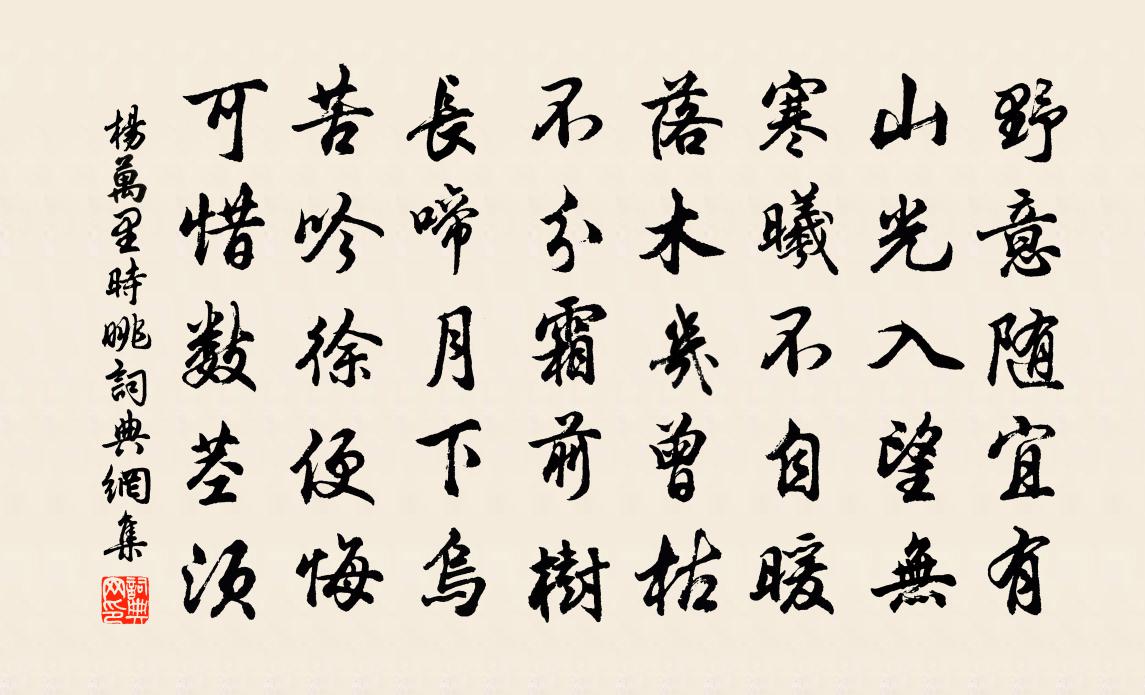 野意随宜有
山光入望無
寒曦不自暖
落木幾曾枯
不分霜前樹
長啼月下烏
苦吟徐便悔
可惜數莖須
楊萬里時眺詞典網集
詞典網印